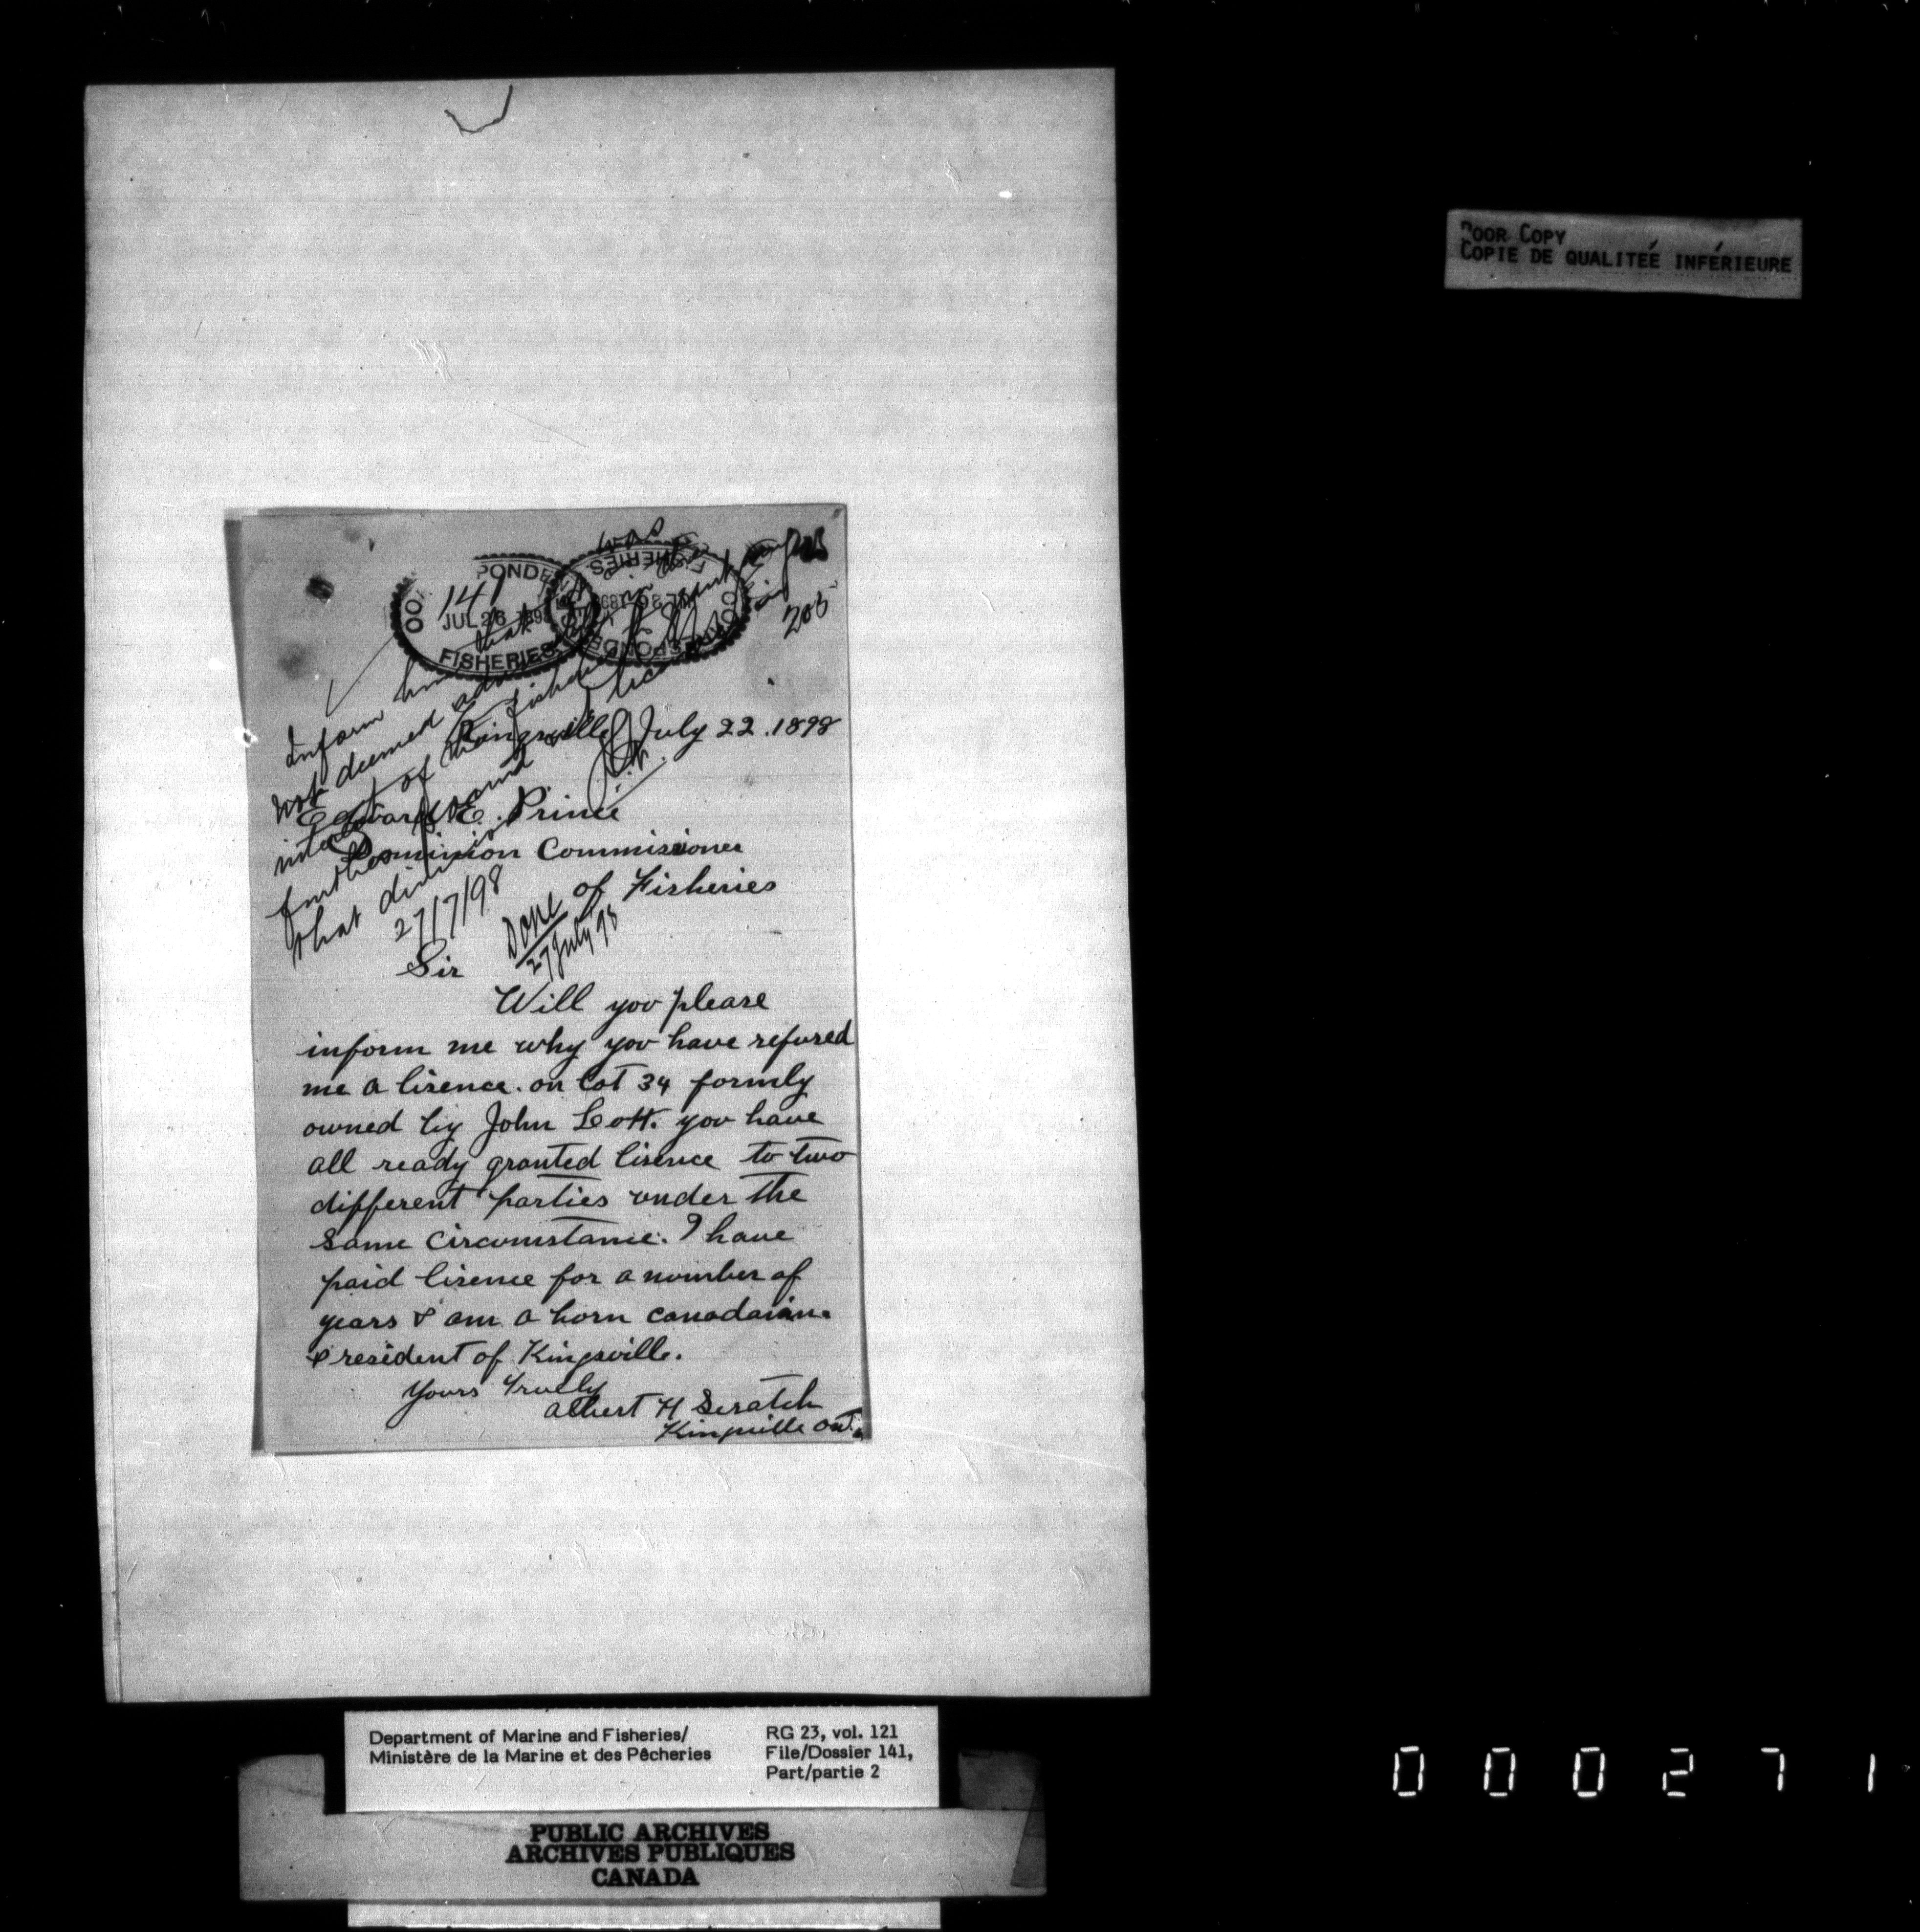 POOR COPY
COPIE DE QUALITÉE INFÉRIEURE
141
JUL 26 1898
FISHERIES
FISHERIES
205
Kingsville July 22. 1898
Edward E. Prince
Dominion Commissioner
of Fisheries
Inform him that
not deemed
interest of the fisheries
further
that division
27/7/98
Done
27 July 98
Sir
Will you please
inform me why you have refused
me a lisence. on Lot 34 formly
owned by John Lott. you have
all ready granted lisence to two
different parties under the
same circumstance. I have
paid lisence for a number of
years & am a born canadaian.
& resident of Kingsville.
Yours Truely
Albert H Scratch
Kingsville Ont.
Department of Marine and Fisheries/
Ministère de la Marine et des Pêcheries
RG 23, vol. 121
File/Dossier 141,
Part/partie 2
PUBLIC ARCHIVES
ARCHIVES PUBLIQUES
CANADA
000271